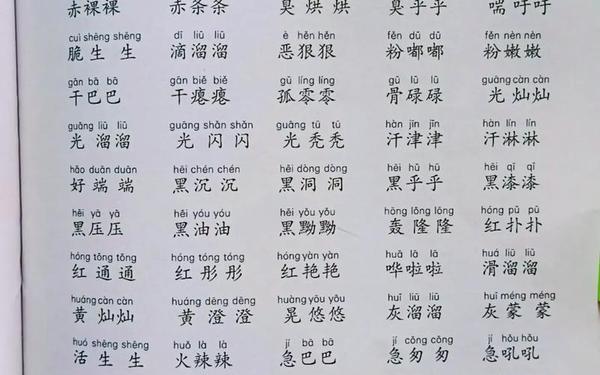 赤裸裸 赤条条 臭烘烘 臭乎乎 喘吁吁
cuì shēng shēng dī liū liū è hěn hěn fěn dū dū fěn nèn nèn
脆生生 滴溜溜 恶狠狠 粉嘟嘟 粉嫩嫩
gān bā bā gān biě biě gū líng líng gǔ lū lū guāng càn càn
干巴巴 干瘪瘪 孤零零 骨碌碌 光灿灿
guāng liū liū guāng shǎn shǎn guāng tū tū hàn jīn jīn hàn lín lín
光溜溜 光闪闪 光秃秃 汗津津 汗淋淋
hǎo duān duān hēi chén chén hēi dòng dòng hēi hū hū hēi qī qī
好端端 黑沉沉 黑洞洞 黑乎乎 黑漆漆
hēi yā yā hēi yóu yóu hēi yǒu yǒu hōng lōng lōng hóng pū pū
黑压压 黑油油 黑黝黝 轰隆隆 红扑扑
hóng tōng tōng hóng tóng tóng hóng yàn yàn huā lā lā huá liū liū
红通通 红彤彤 红艳艳 哗啦啦 滑溜溜
huáng càn càn huáng dēng dēng huàng yōu yōu huī liū liū huī méng méng
黄灿灿 黄澄澄 晃悠悠 灰溜溜 灰蒙蒙
huó shēng shēng huǒ là là jí bā bā jí cōng cōng jí hǒu hǒu
活生生 火辣辣 急巴巴 急匆匆 急吼吼